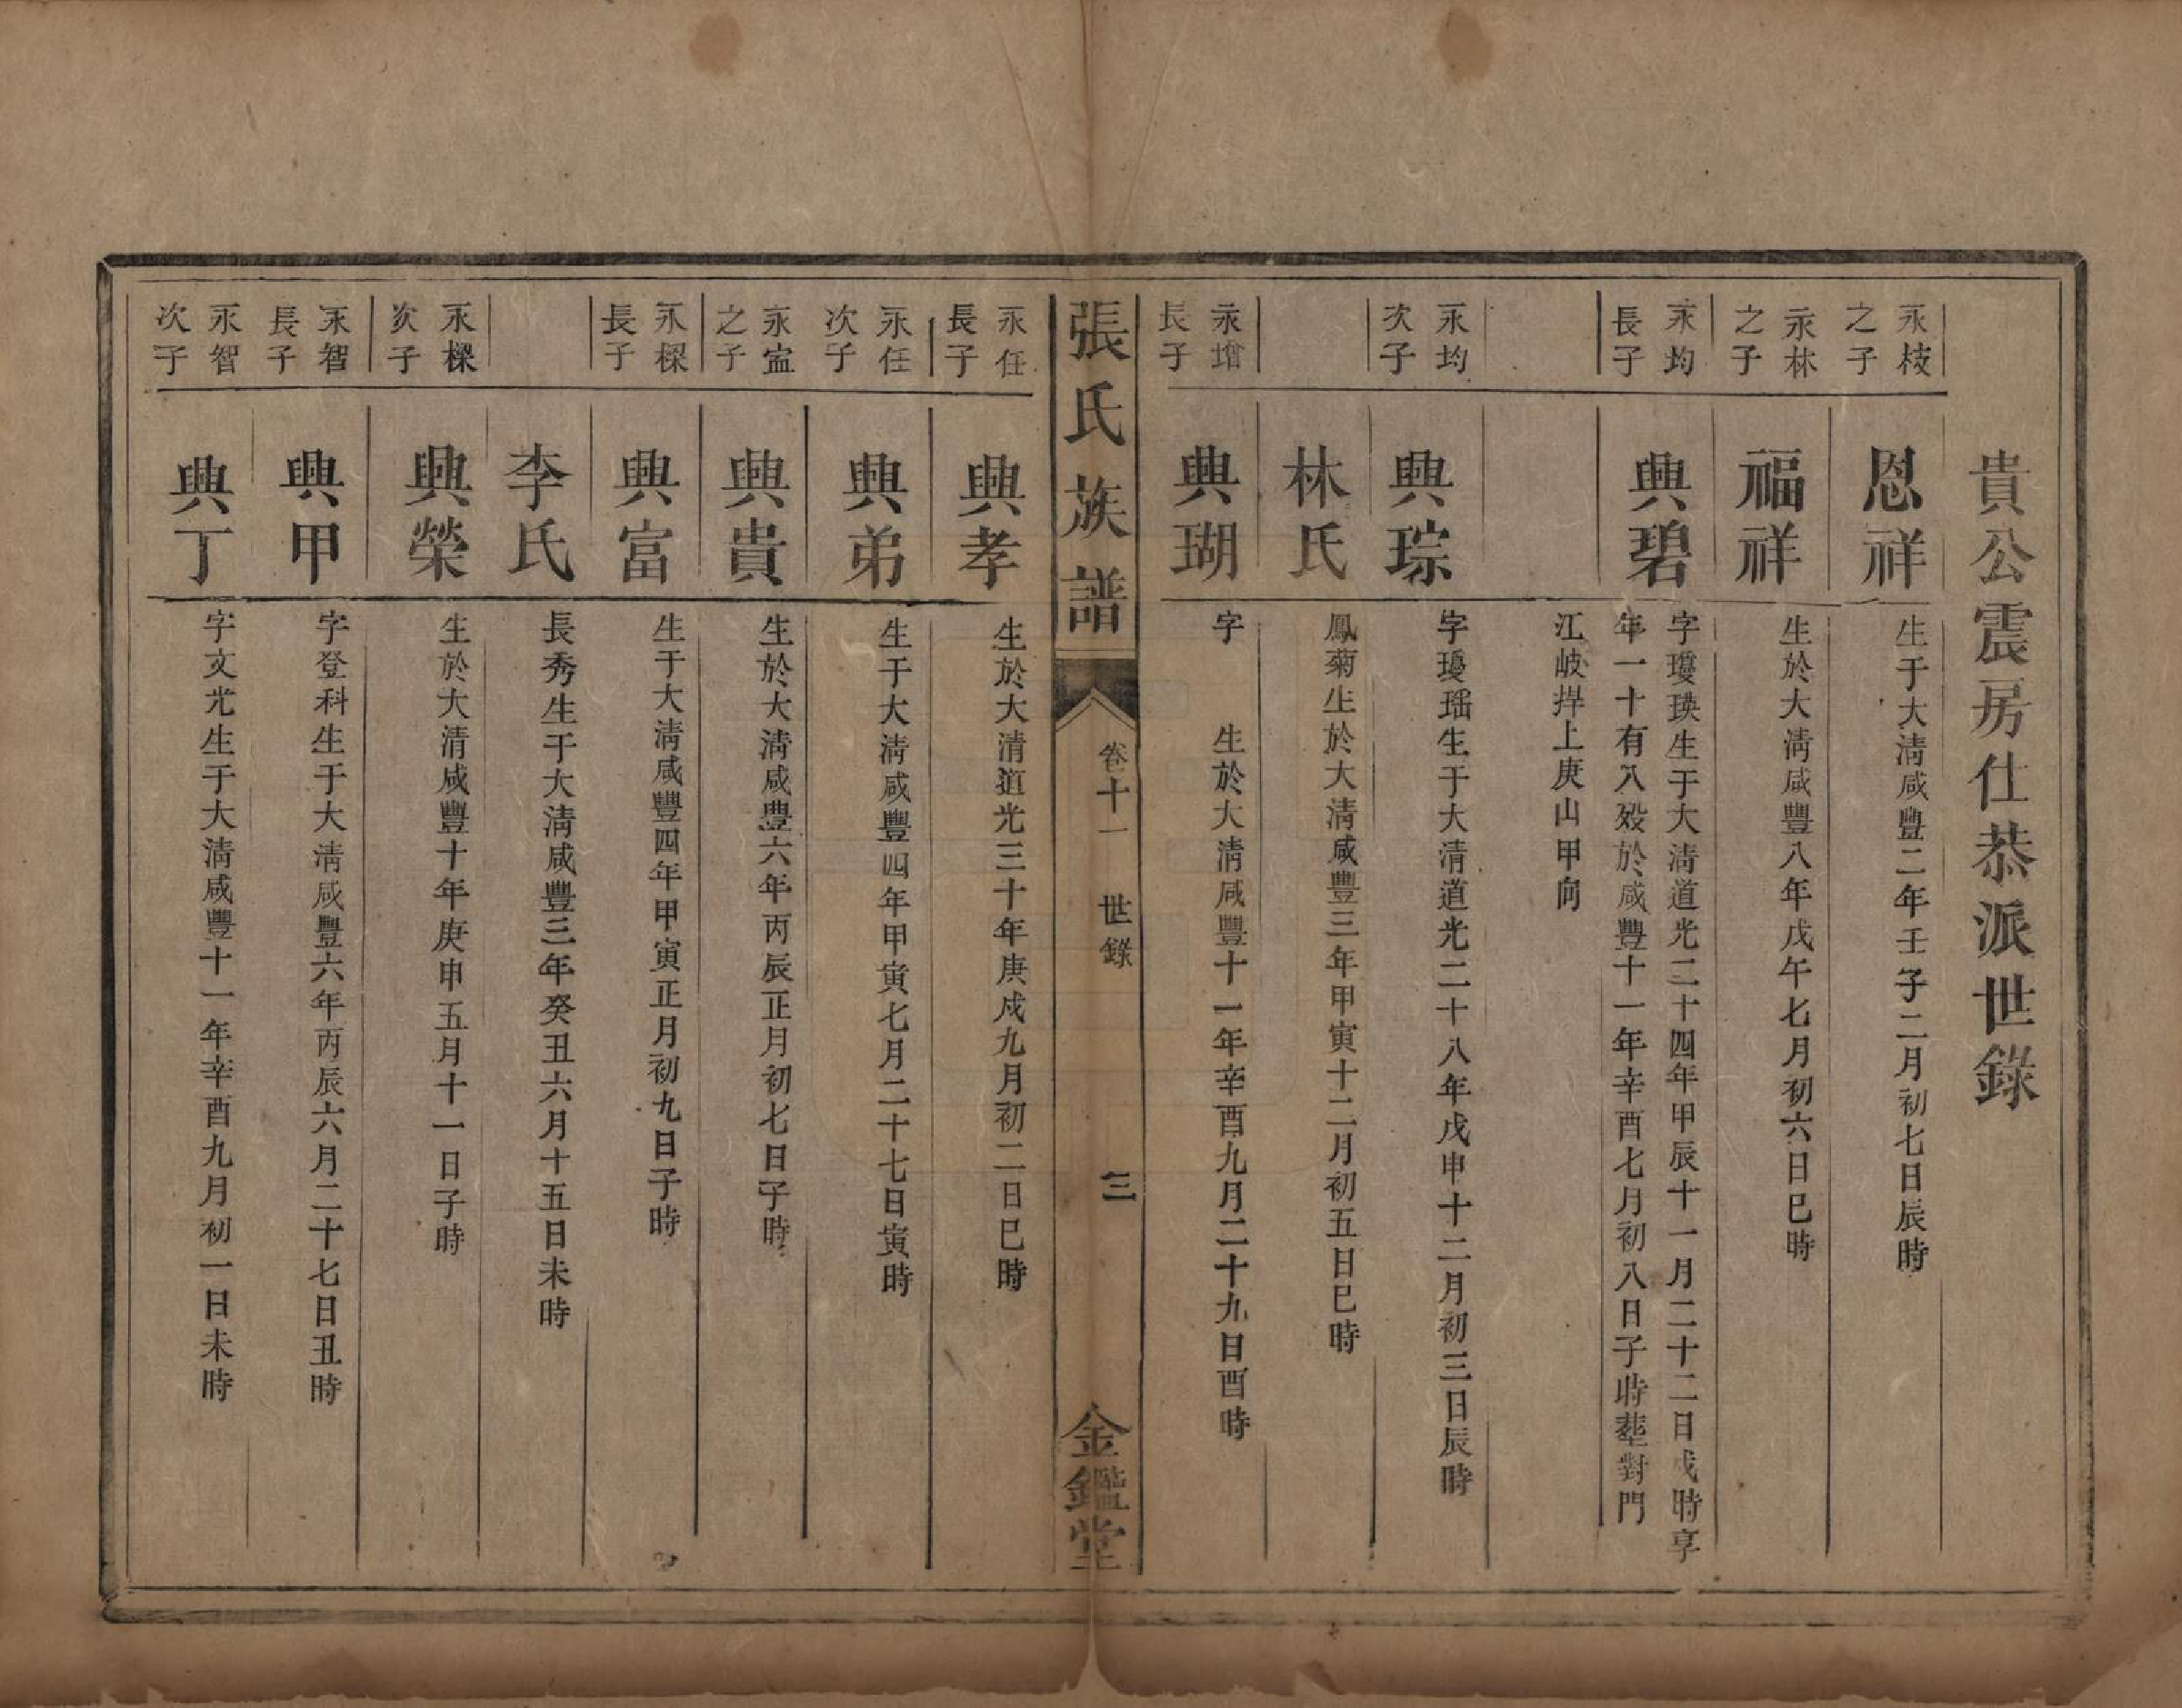 貴公震房仕恭派世錄
永枝之子
恩祥
生于大淸咸豐二年壬子二月初七日辰時
永林之子
福祥
生於大淸咸豐八年戊午七月初六日巳時
永均長子
興碧
字瓊瑛生于大淸道光二十四年甲辰十一月二十二日戌時享
年一十有八歿於咸豐十一年辛酉七月初八日子時葬對門
江岐垾上庚山甲向
永均次子
興琮
字瓊瑶生于大清道光二十八年戊申十二月初三日辰時
林氏
鳳菊生於大清咸豐三年甲寅十二月初五日巳時
永增長子
興瑚
字　生於大淸咸豐十一年辛酉九月二十九日酉時
張氏族譜
卷十一　世錄　三
金鑑堂
永任長子
興孝
生於大清道光三十年庚戌九月初二日巳時
永任次子
興弟
生于大淸咸豐四年甲寅七月二十七日寅時
永寍之子
興貴
生於大淸咸豐六年丙辰正月初七日子時
永樑長子
興富
生于大淸咸豐四年甲寅正月初九日子時
李氏
長秀生于大淸咸豐三年癸丑六月十五日未時
永樑次子
興榮
生於大清咸豐十年庚申五月十一日子時
永智長子
興甲
字登科生于大淸咸豐六年丙辰六月二十七日丑時
永智次子
興丁
字文光生于大淸咸豐十一年辛酉九月初一日未時